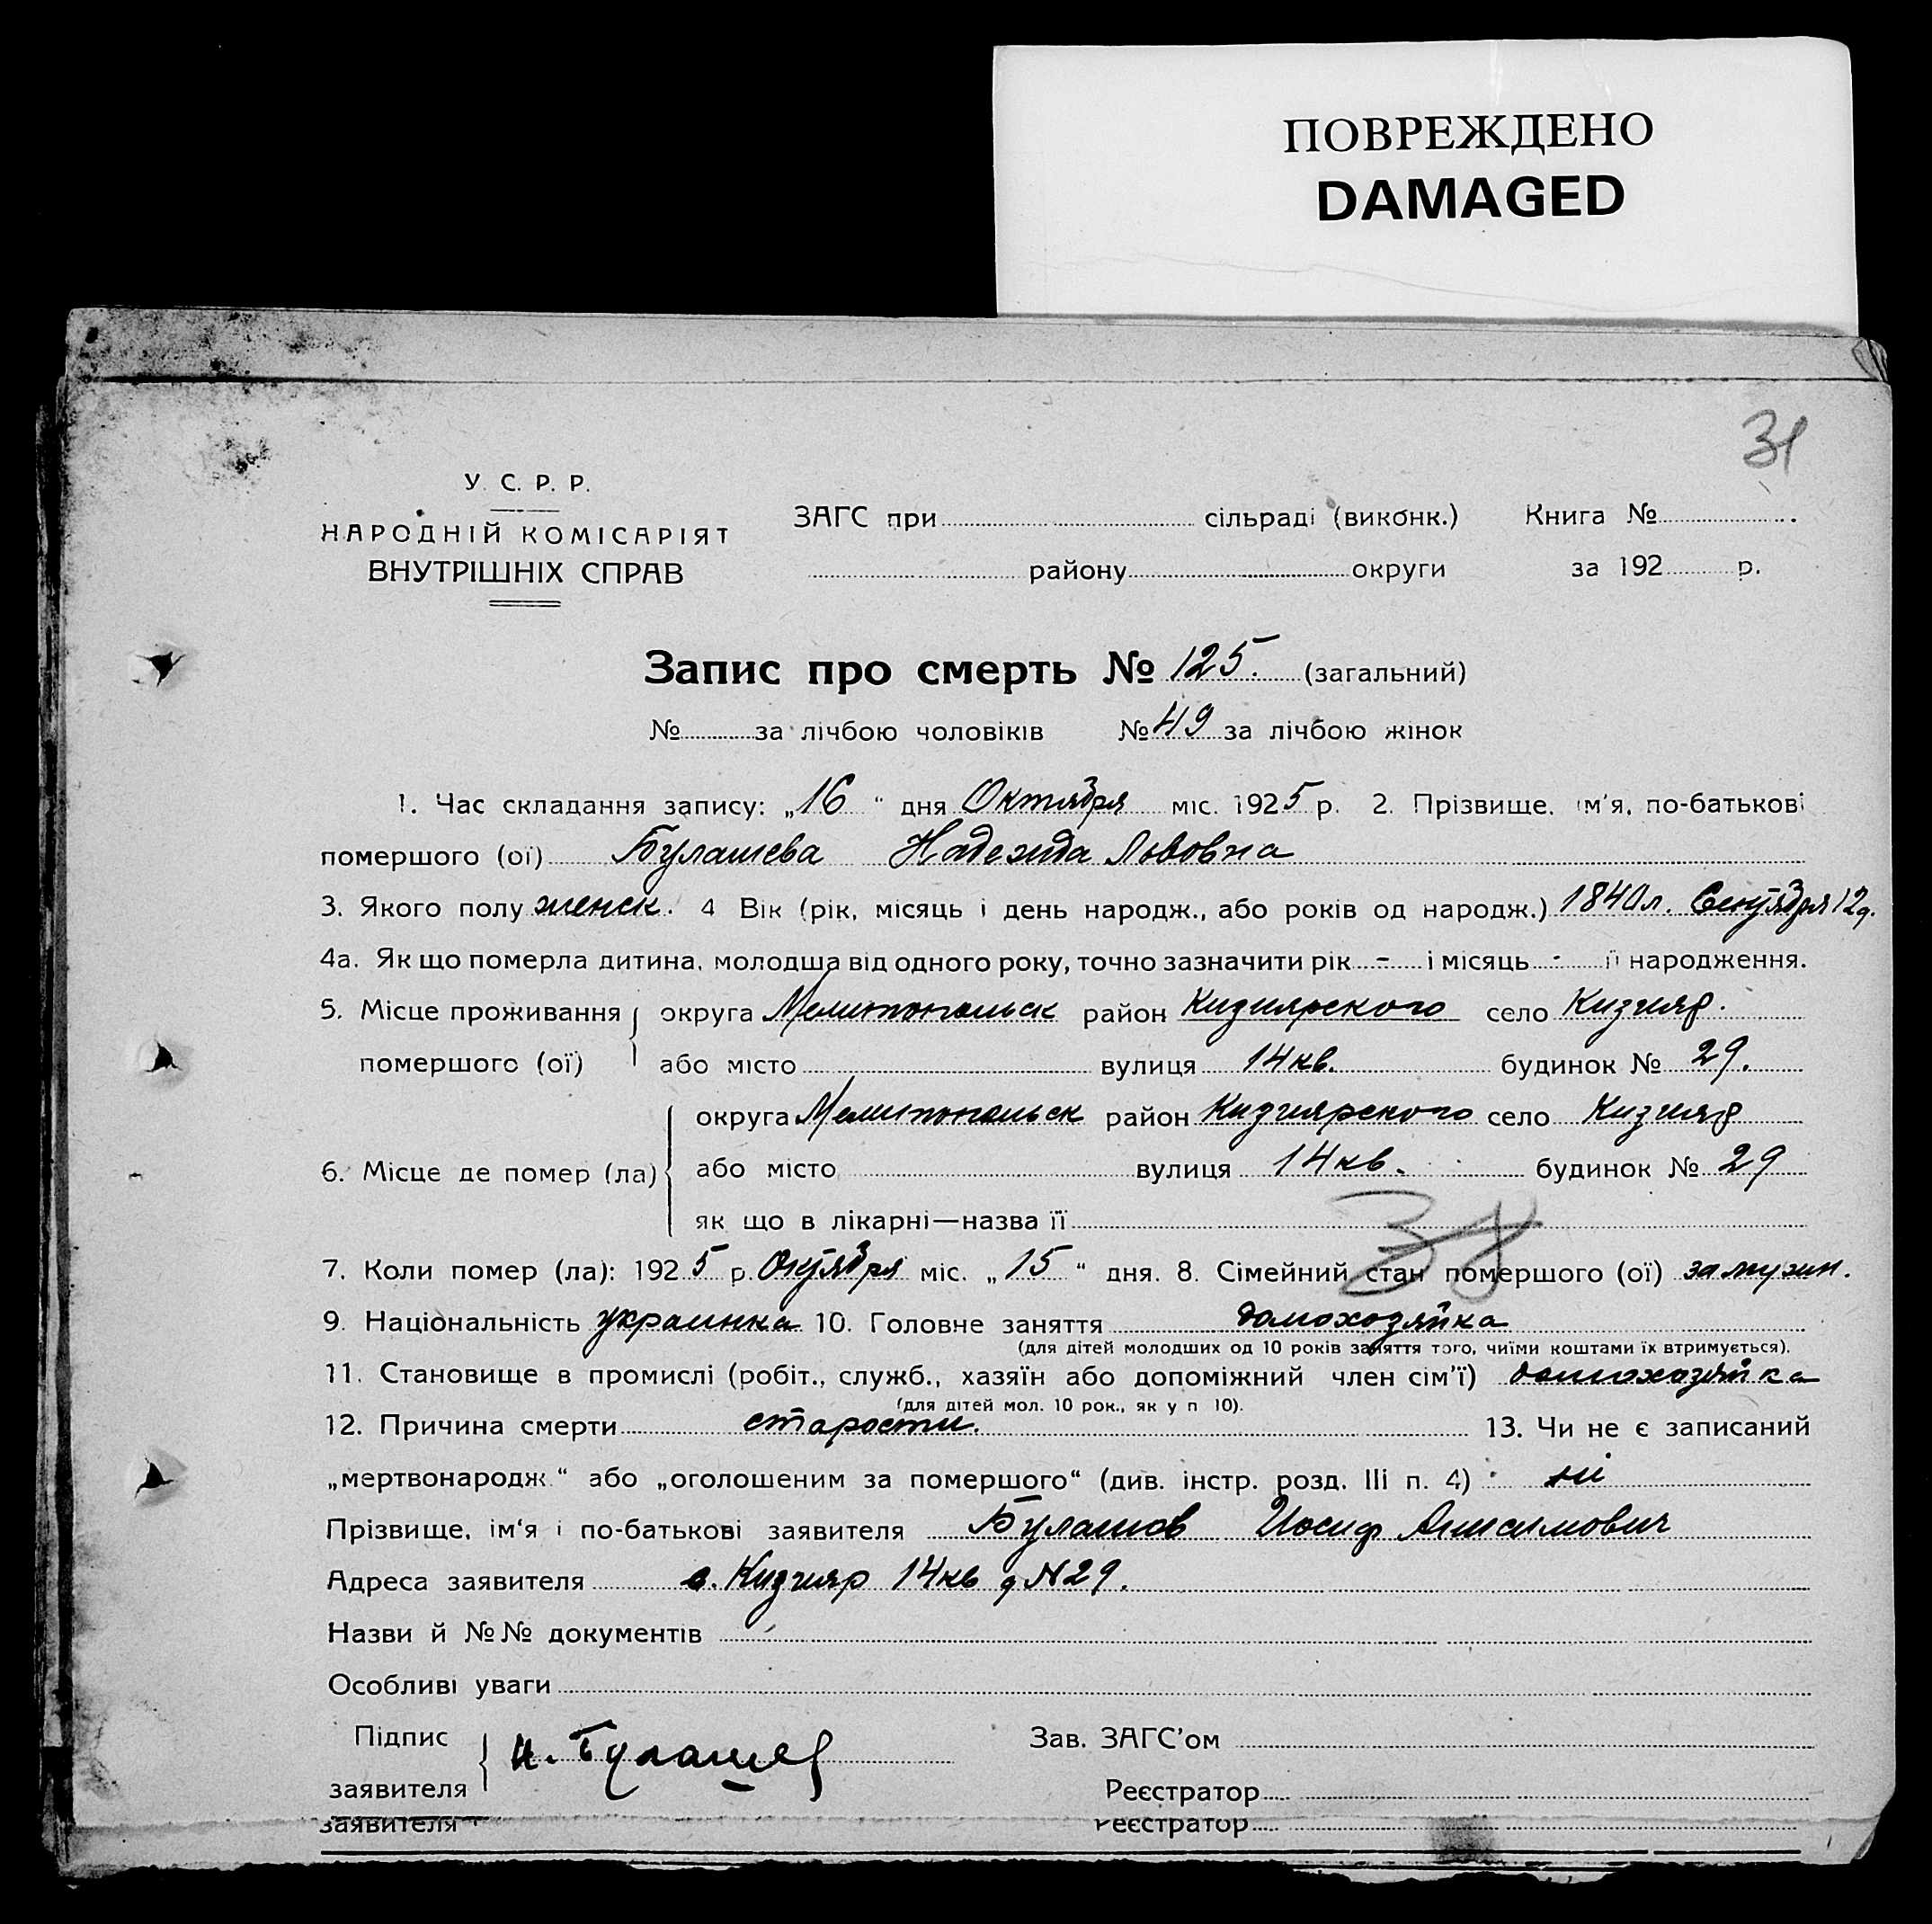 ПОВРЕЖДЕНО
DAMAGED
31
У. С. Р. Р.
НАРОДНІЙ КОМІСАРІЯТ
ВНУТРІШНІХ СПРАВ
ЗАГС при сільраді (виконк.) Книга №
району округи за 192 р.
Запис про смерть № 125. (загальний)
№ за лічбою чоловіків № 49 за лічбою жінок
1. Час складання запису: „16" дня Октября міс. 1925 р. 2. Прізвище, ім'я, по-батькові
помершого (ої) Булашева Надежда Львовна
3. Якого полу женск. 4 Вік (рік, місяць і день народж., або років од народж.) 1840 л. Сентября 12 д.
4а. Як що померла дитина, молодша від одного року, точно зазначити рік - і місяць - її народження.
5. Місце проживання округа Мелитопольск район Кизиярского село Кизияр.
помершого (ої) або місто вулиця 14 кв. будинок № 29.
округа Мелитопольск район Кизиярского село Кизияр
6. Місце де помер (ла) або місто вулиця 14 кв. будинок № 29
як що в лікарні—назва її
38
7. Коли помер (ла): 1925 р. Октября міс. „15" дня. 8. Сімейний стан помершого (ої) замужн.
9. Національність украинка 10. Головне заняття домохозяйка
(для дітей молодших од 10 років заняття того, чиїми коштами їх втримується).
11. Становище в промислі (робіт., служб., хазяїн або допоміжний член сім'ї) домохозяйка
(для дітей мол. 10 рок., як у п 10).
12. Причина смерти старости. 13. Чи не є записаний
„мертвонародж." або „оголошеним за помершого" (див. інстр. розд. III п. 4) ні
Прізвище, ім'я і по-батькові заявителя Булашов Иосиф
Адреса заявителя с. Кизияр 14 кв д N 29.
Назви й №№ документів
Особливі уваги
Підпис И. Булашев Зав. ЗАГС'ом
заявителя Реєстратор
заявителя Реєстратор